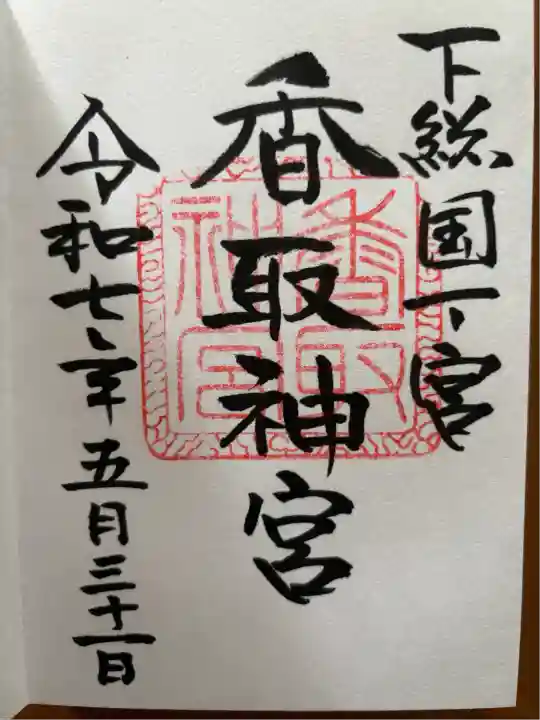 下総国一宮
香取神宮
香取神宮
令和七年五月三十一日